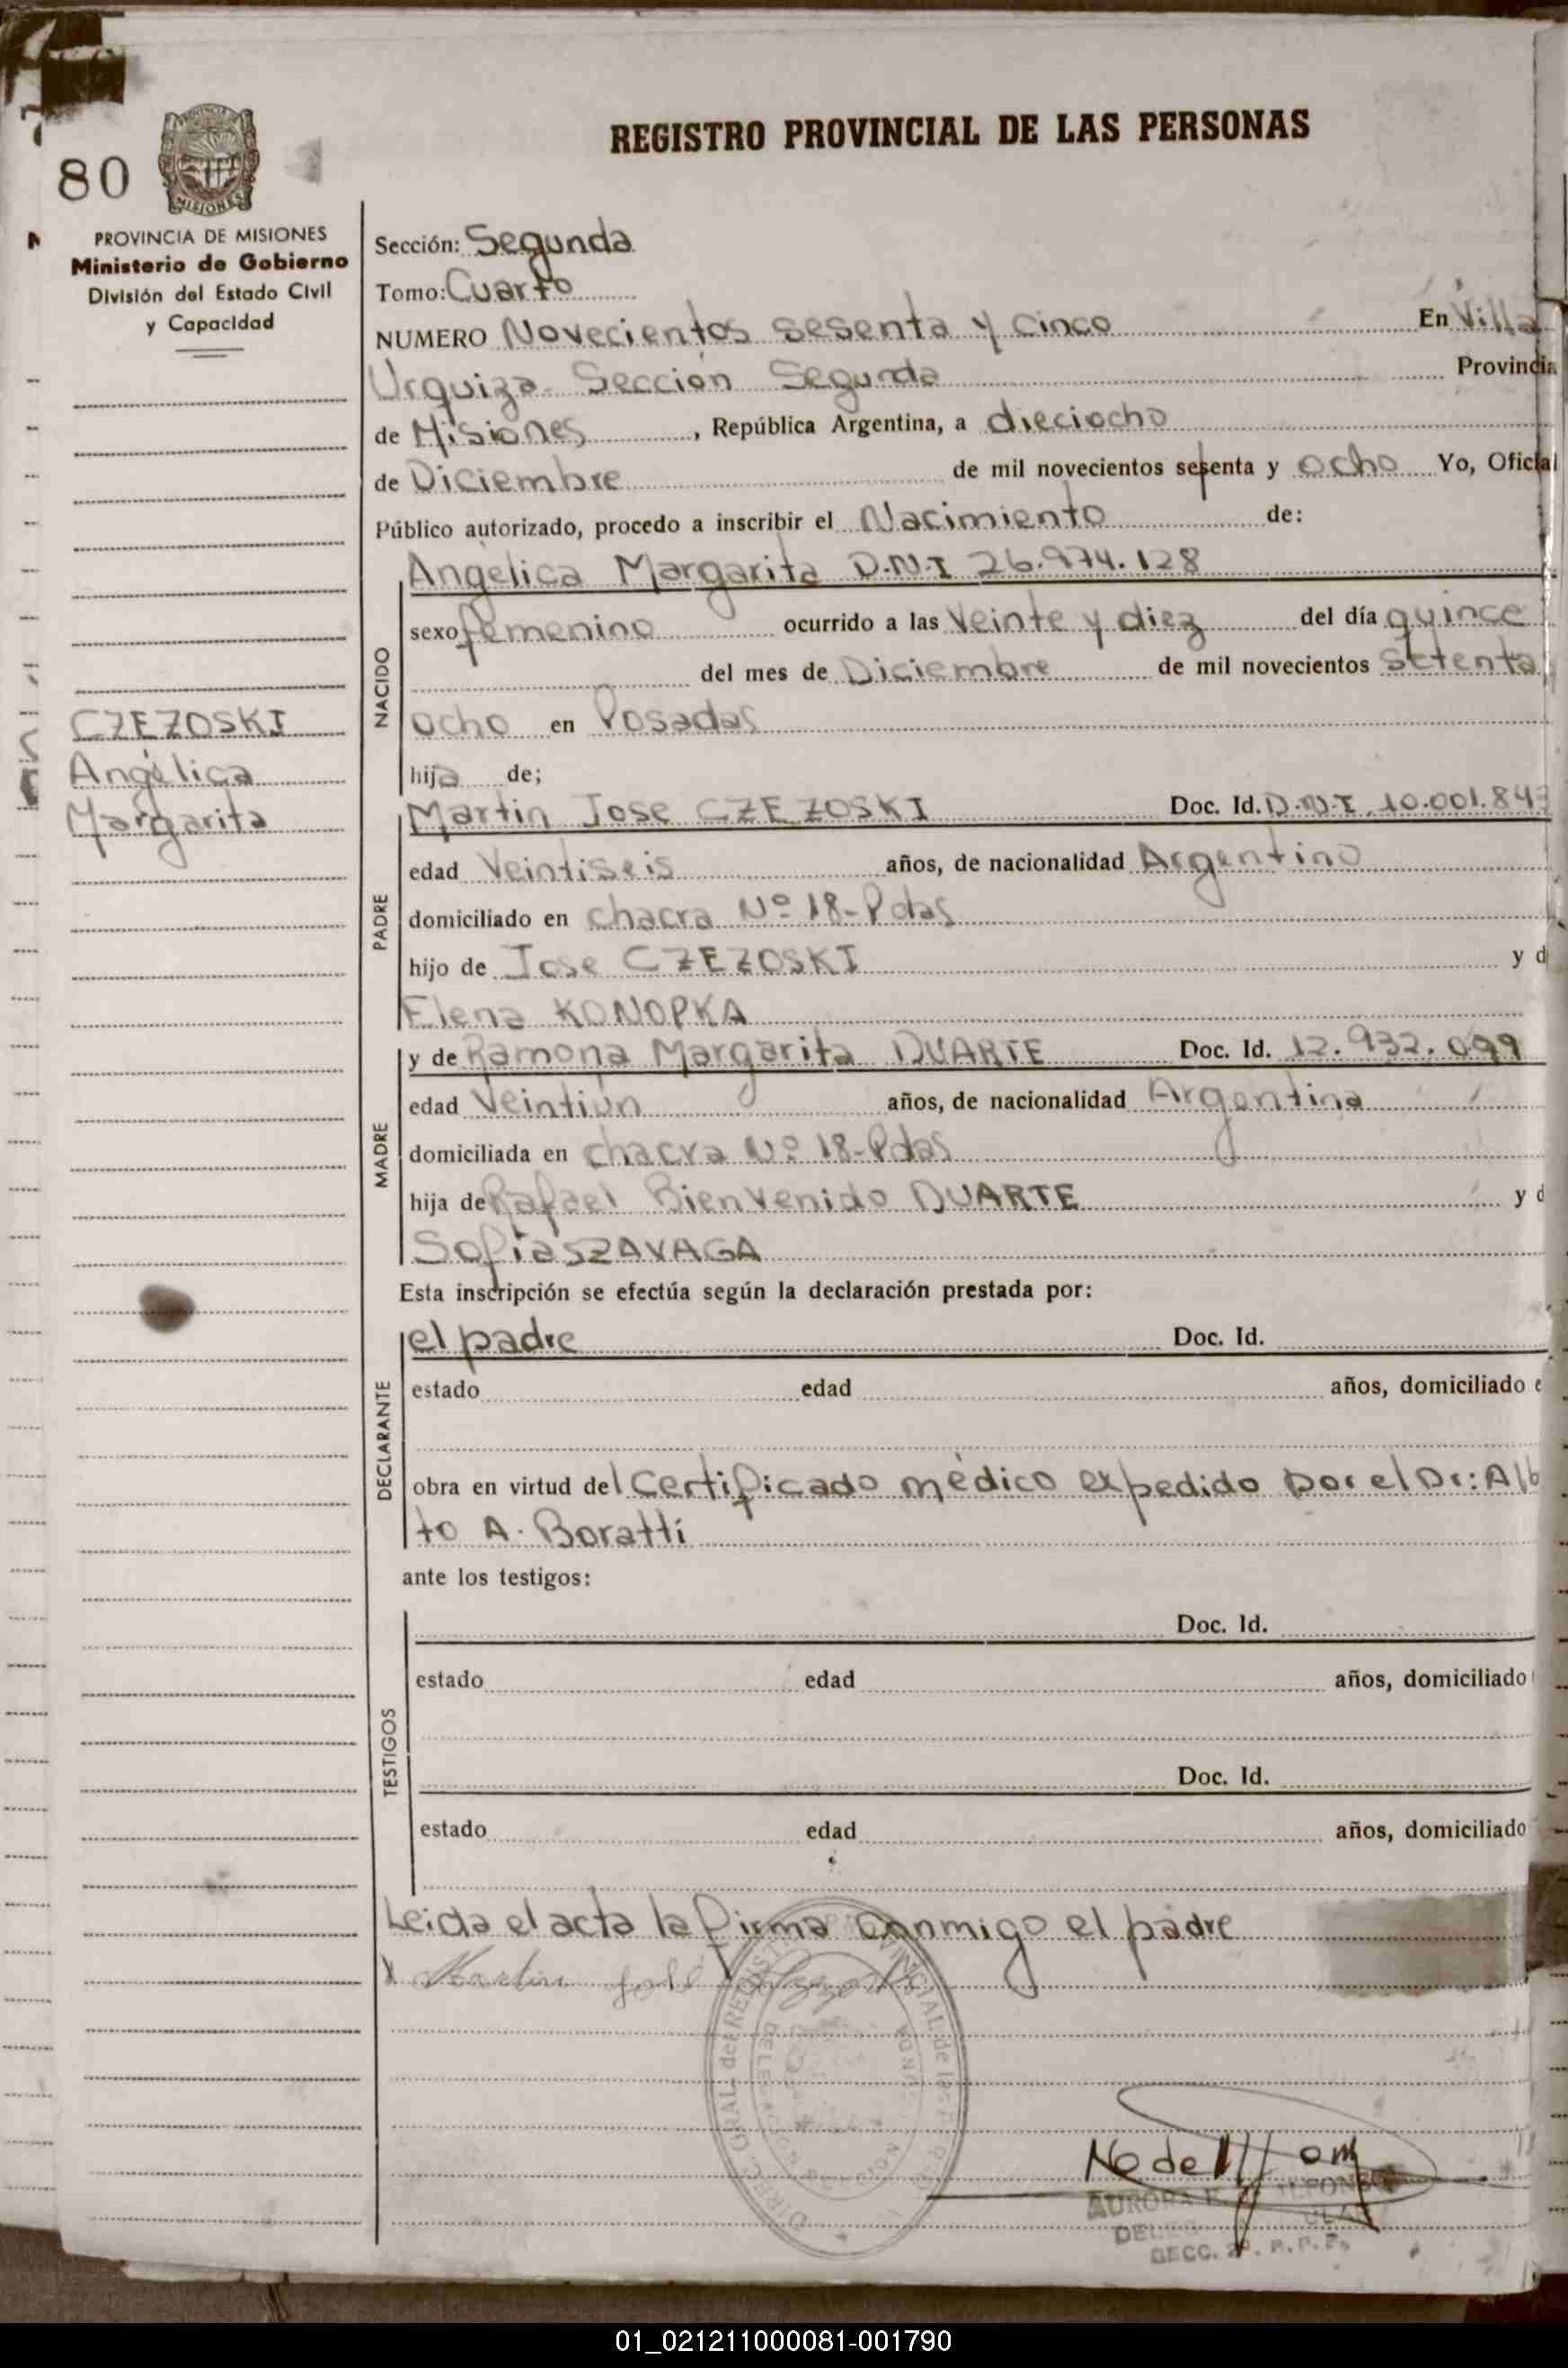 REGISTRO PROVINCIAL DE LAS PERSONAS
80
MISIONES
PROVINCIA DE MISIONES
Ministerio de Gobierno
División del Estado Civil
y Capacidad
CZEZOSKI
Angélica
Margarita
Sección: Segunda
Tomo: Cuarto
NUMERO Novecientos sesenta y cinco En Villa
Urquiza Sección Segunda Provincia
de Misiones, República Argentina, a dieciocho
de Diciembre de mil novecientos setenta y ocho Yo, Oficial
Público autorizado, procedo a inscribir el Nacimiento de:
NACIDO
Angélica Margarita D.N.I 26.974.128
sexo femenino ocurrido a las Veinte y diez del día quince
del mes de Diciembre de mil novecientos setenta
ocho en Posadas
hija de;
PADRE
Martin Jose CZEZOSKI Doc. Id. D.N.I. 10.001.843
edad Veintiseis años, de nacionalidad Argentino
domiciliado en chacra Nº 18-Pdas
hijo de Jose CZEZOSKI y d
Elena KONOPKA
MADRE
y de Ramona Margarita DUARTE Doc. Id. 12.932.099
edad Veintiún años, de nacionalidad Argentina
domiciliada en chacra Nº 18-Pdas
hija de Rafael Bienvenido DUARTE y d
Sofia SZAVAGA
Esta inscripción se efectúa según la declaración prestada por:
DECLARANTE
el padre Doc. Id.
estado edad años, domiciliado e
obra en virtud del Certificado médico expedido por el Dr: Alb
to A. Boratti
ante los testigos:
TESTIGOS
Doc. Id.
estado edad años, domiciliado
Doc. Id.
estado edad años, domiciliado
Leida el acta la firma conmigo el padre
Martin José
DIREC. GRAL. del REGISTRO PROVINCIAL de las
AURORA
SECC. 2ª. R.P.P.
01_021211000081-001790